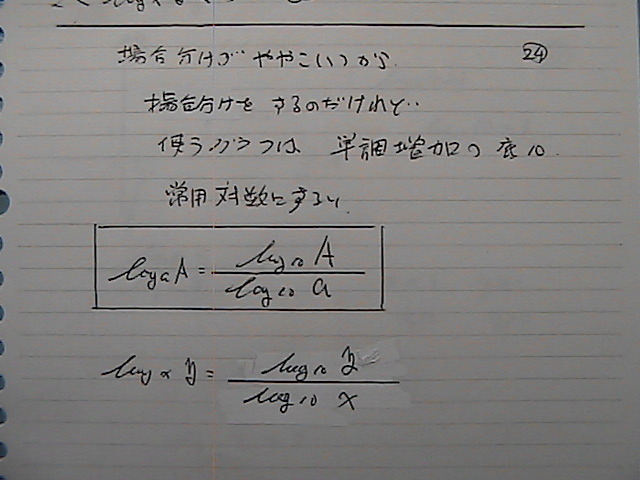 場合分けがややこしいから
㉔
場合分けをするのだけれど‥
使うグラフは 単調増加の底10
常用対数にするい
logaA = log10 A / log10 a
logx y = log10 y / log10 x